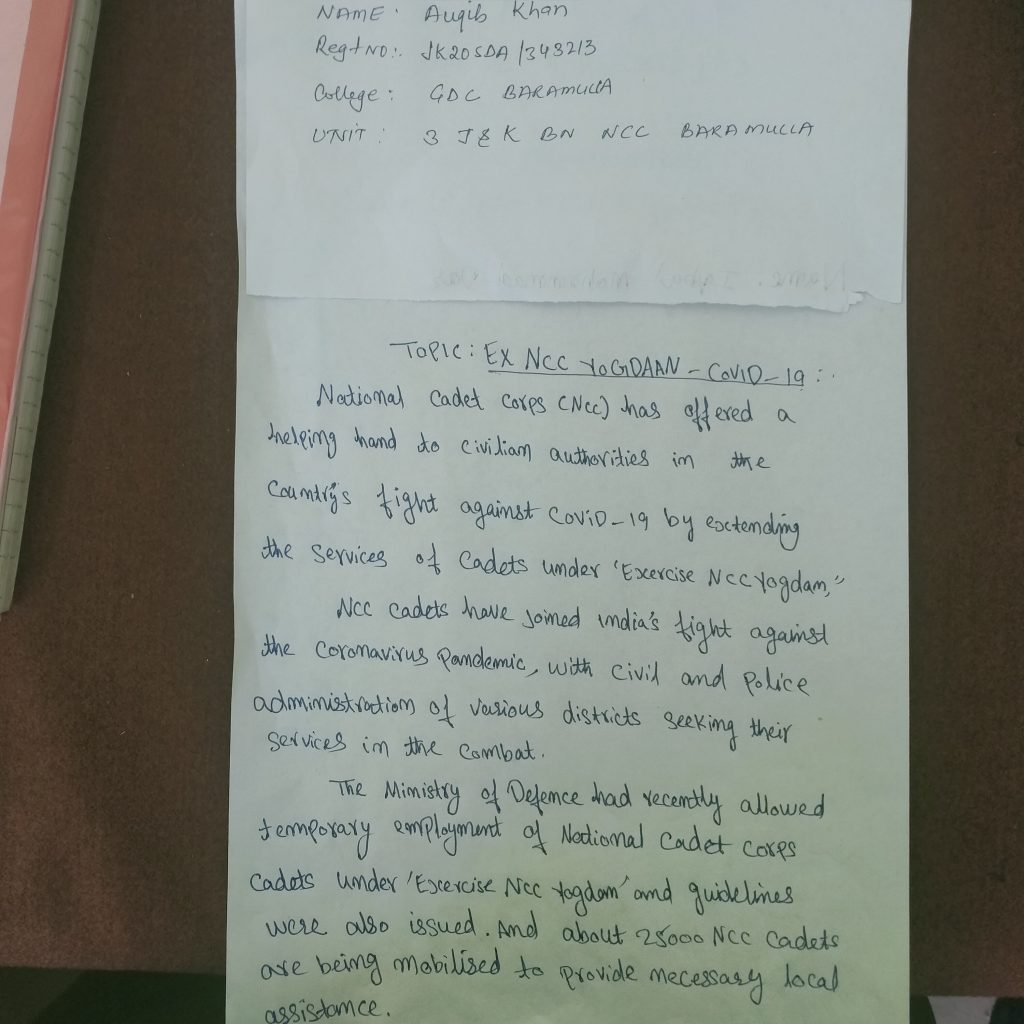 NAME: Auqib Khan
Regt NO:. JK20SDA/343213
College: GDC BARAMULLA
UNIT: 3 J&K BN NCC BARAMULLA
TOPIC: EX NCC YOGDAAN - COVID-19:.
National Cadet Corps (NCC) has offered a
helping hand to civilian authorities in the
Country's fight against COVID-19 by extending
the services of Cadets under 'Exercise NCC Yogdan,"
NCC cadets have joined India's fight against
the coronavirus Pandemic, with civil and Police
administration of various districts seeking their
services in the combat.
The Ministry of Defence had recently allowed
temporary employment of National Cadet Corps
Cadets under 'Exercise NCC Yogdan' and guidelines
were also issued. And about 25000 NCC Cadets
are being mobilised to provide necessary local
assistance.